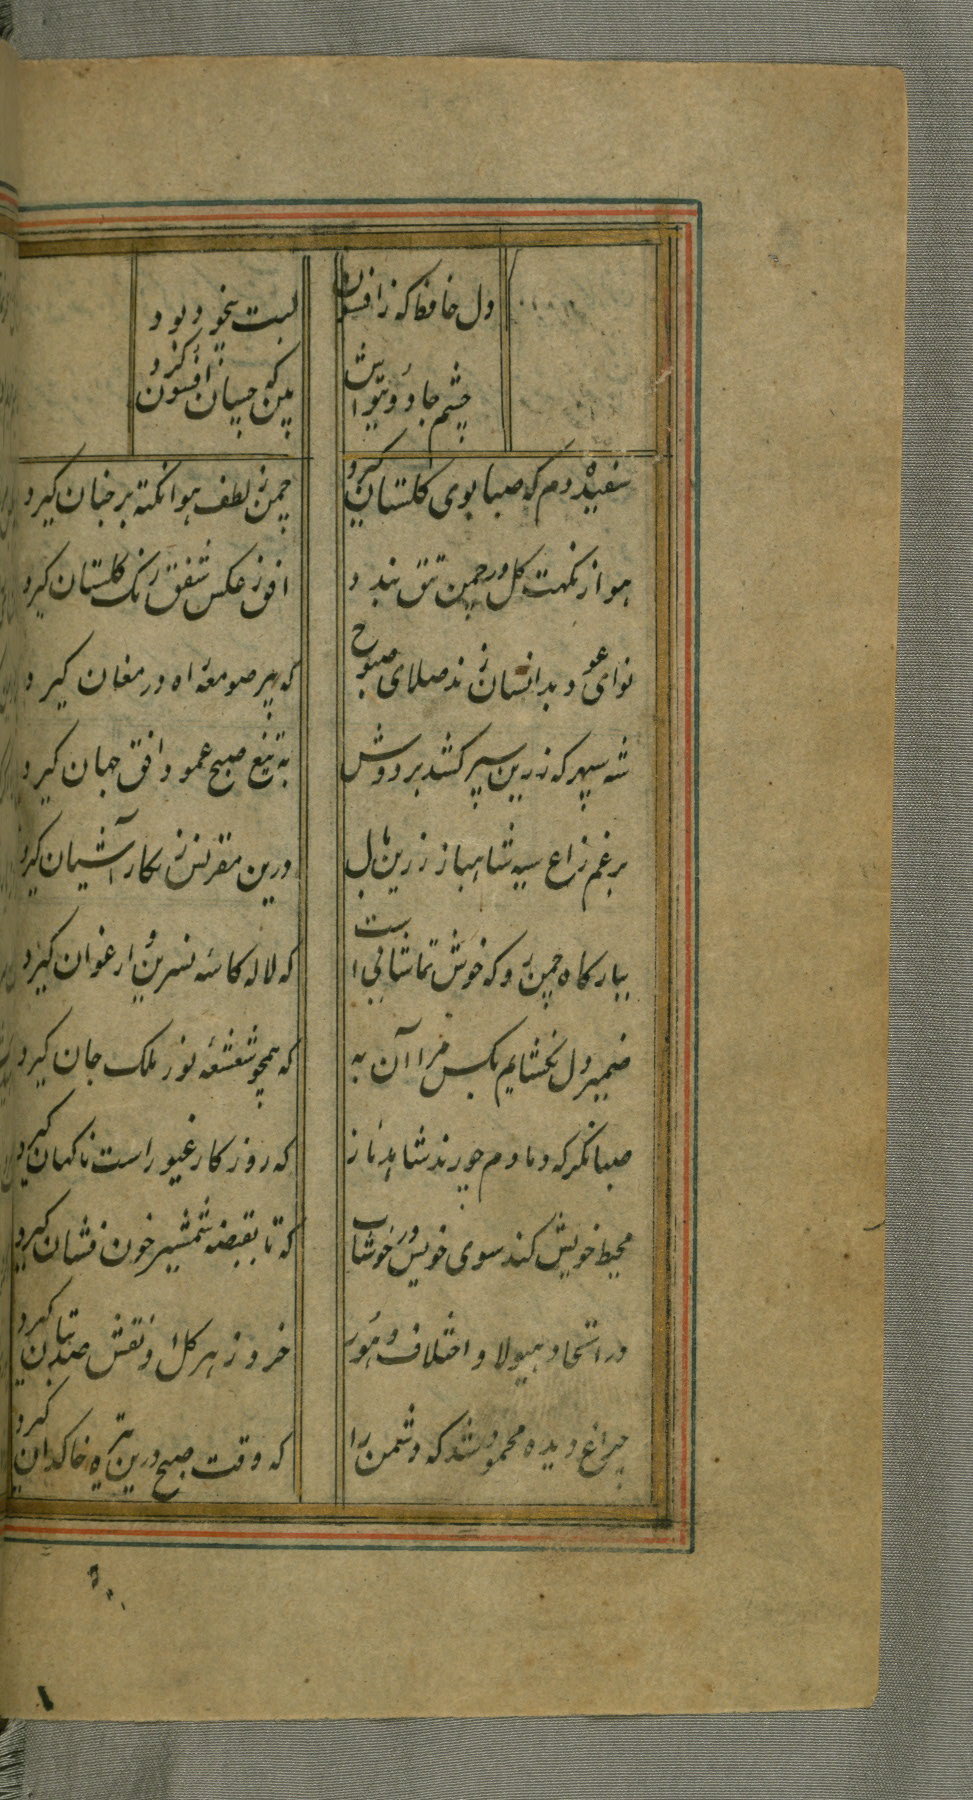 دل حافظ که ز افسون لبت بیخود بود
چشم جادوی تواش بین که چسان افسون کرد
سفیده دم که صبا بوی کلستان کیرد چمن ز لطف هوا نکته بر جنان کیرد
هوا ز نکهت کل در چمن تتق بندد افق ز عکس شفق رنک کلستان کیرد
نوای عود بدانسان زند صلای صبوح که پیر صومعه راه در مغان کیرد
شه سپهر که زرین سپر کشد بر دوش به تیغ صبح عمود افق جهان کیرد
برغم زاغ سیه شاهباز زرین بال درین مقرنس زنکار آشیان کیرد
ببارکاه چمن رو که خوش تماشائیست که لاله کاسه نسرین و ارغوان کیرد
ضمیر دل نکشایم بکس مرا آن به که همچو شعشعه نور ملک جان کیرد
صبا نکر که دمادم چو رند شاهدباز
که روزکار غیور است ناکهان کیرد
محیط خویش کند سوی خویش در خوشاب که تا بقبضه شمشیر خون فشان کیرد
در اتحاد هیولا و اختلاف صور خرد ز هر کل او نقش صد بتان کیرد
چراغ دیده محمود شد که دشمن را
که وقت صبح درین تیره خاکدان کیرد